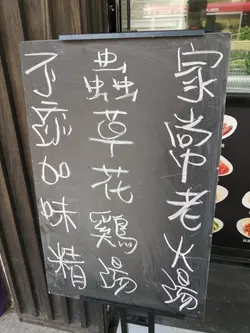 家常老火湯
蟲草花鷄湯
不添加味精